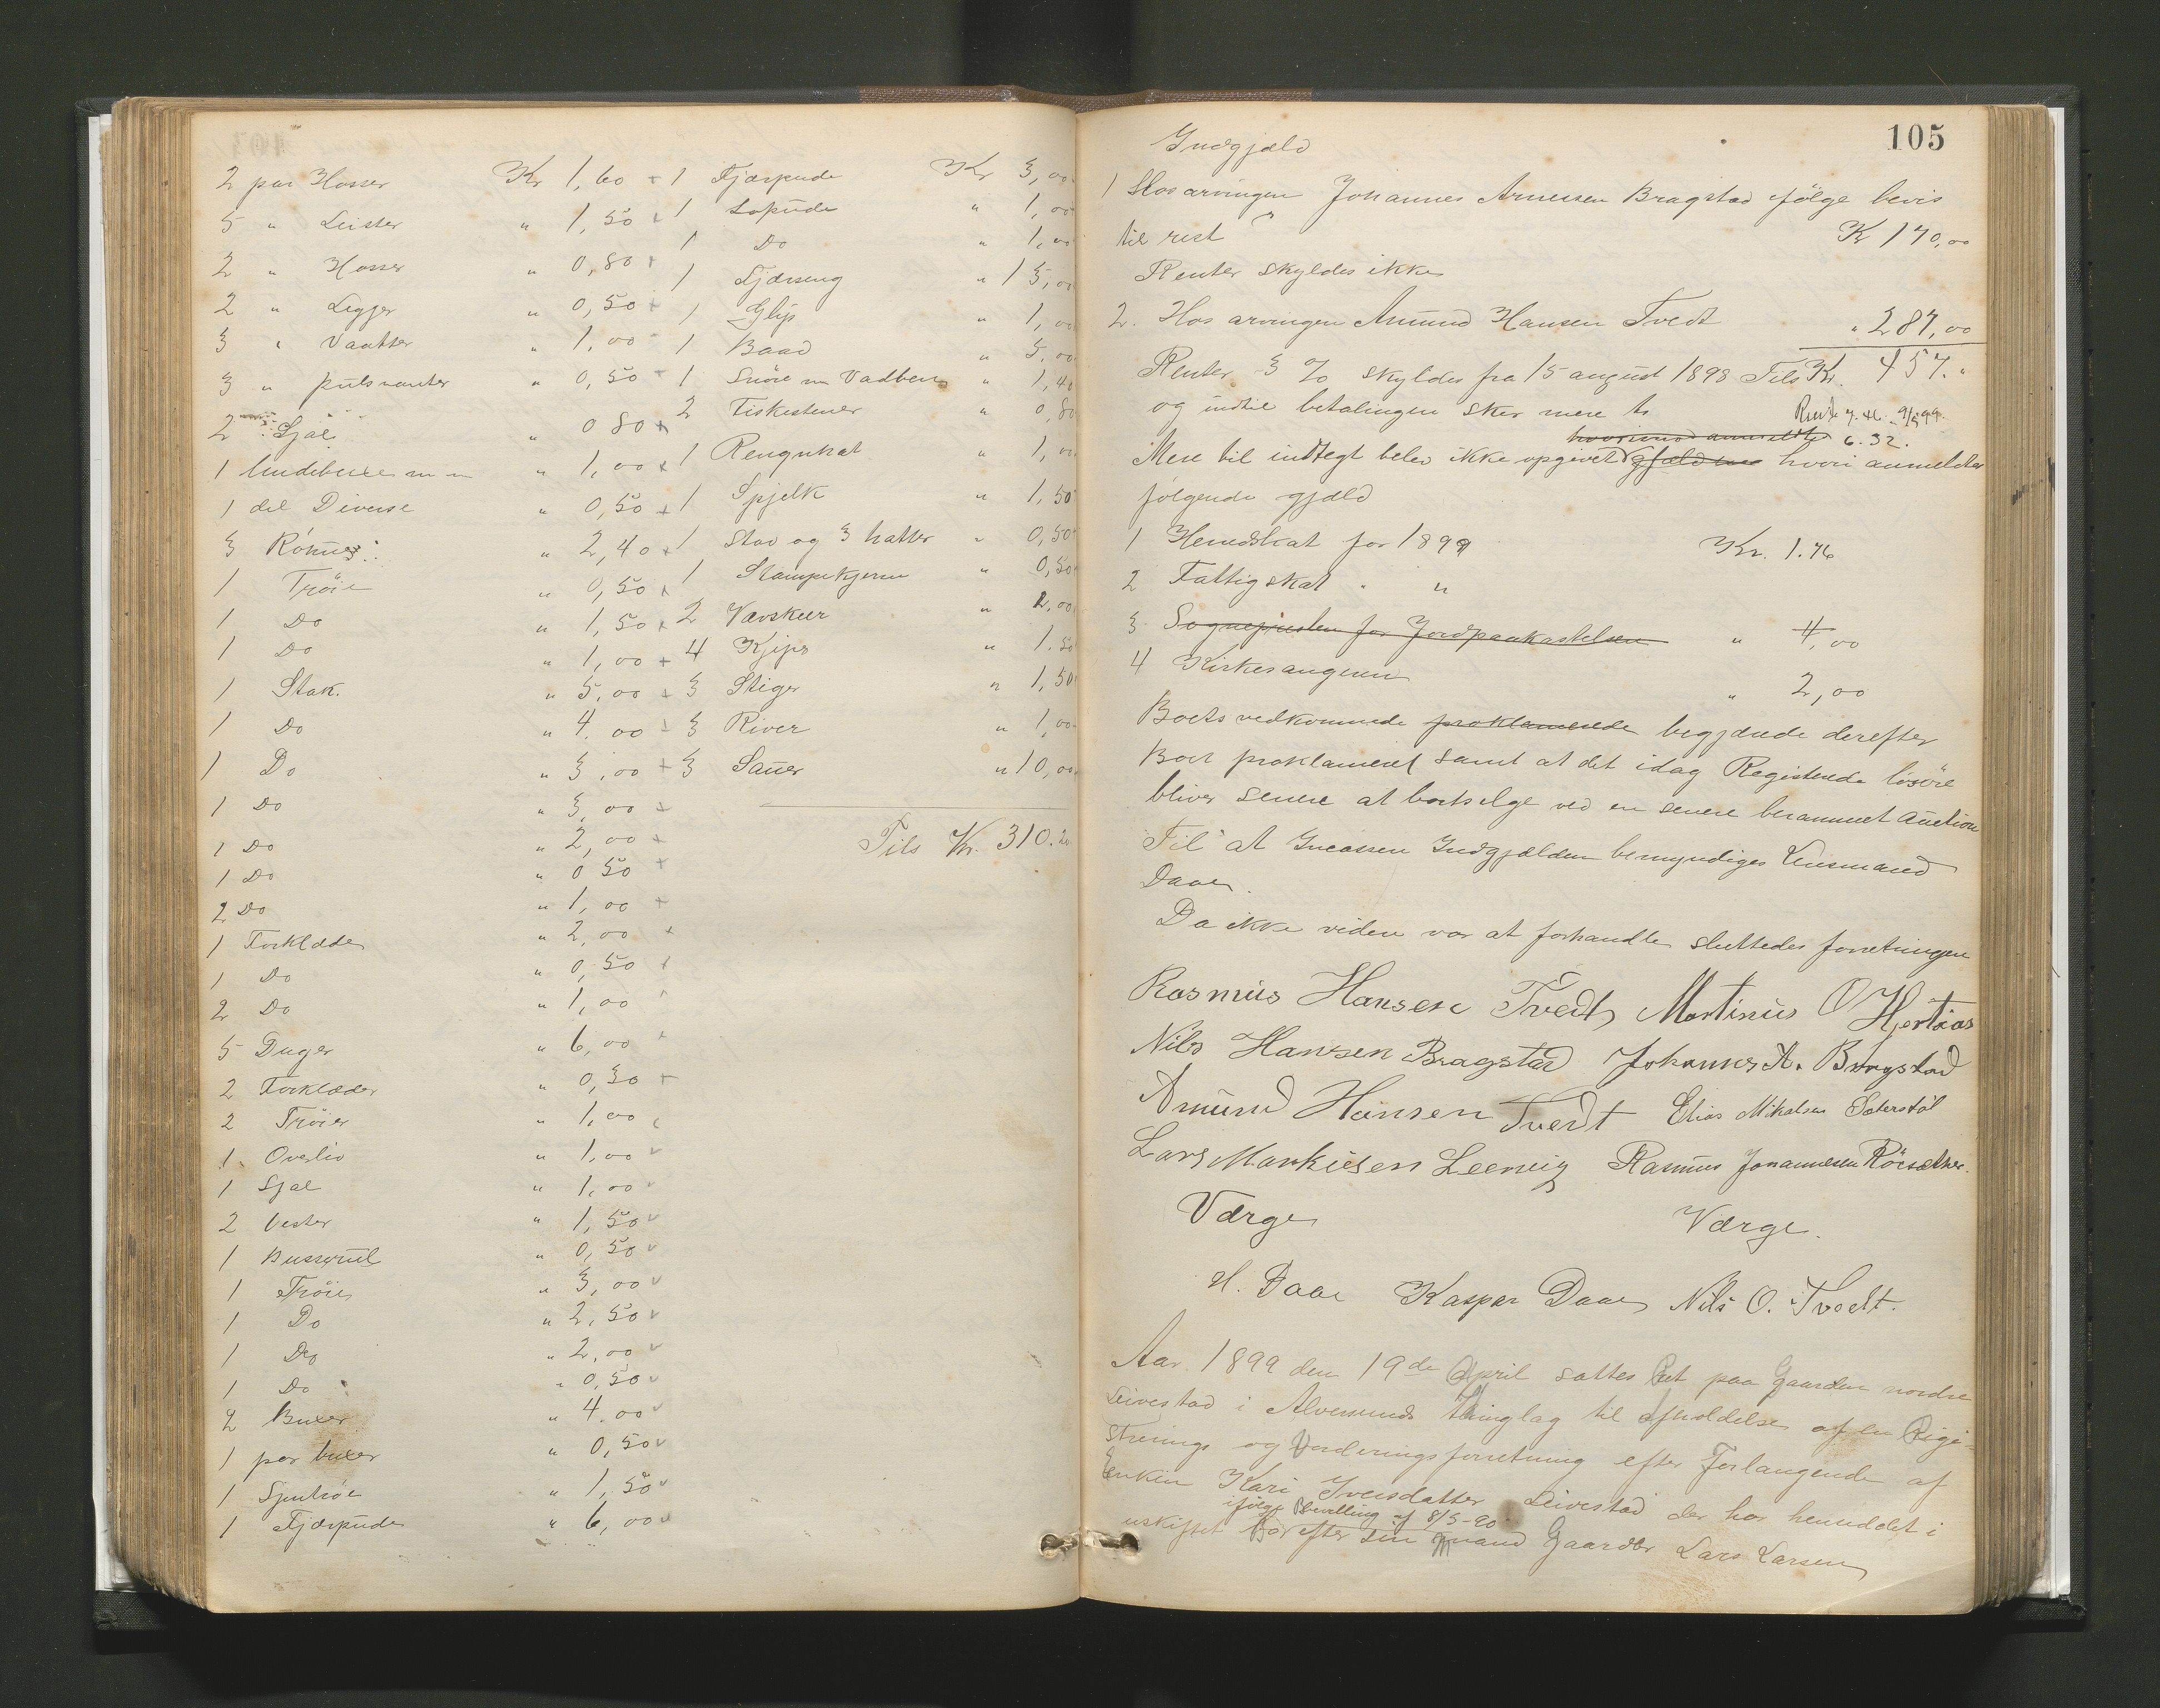 2 par Hosser Kr 1,60
5 " Leister " 1,50
2 " Hosser " 0,80
2 " Legger " 0,50
3 " Vaatter " 1,00
3 " pulsvanter " 0,50
2 Sjal " 0 80
1 " 1,00
1 del Diverse " 0,50
3 " 2,40
1 Tröie " 0,50
1 Do " 1,50
1 Do " 1,00
1 Stak. " 5,00
1 Do " 4.00
1 Do " 3,00
1 Do " 3,00
1 Do " 2,00
1 Do " 0 50
2 Do " 1,00
1 Forklæde " 2,00
1 Do " 0,50
2 Do " 1,00
5 Duger " 6,00
2 Forklæder " 0,50
2 Tröier " 1,00
1 Overliv " 1,00
1 Sjal " 1,00
2 Vester " 1,50
1 Busserul " 0,50
1 Tröie " 3,00
1 Do " 2,50
1 Do " 2,00
1 Do " 0,50
2 Buxer " 4.00
1 par buxer " 0,50
1 " 1,50
1 Fjærpude " 6,00
1 Fjærpude Kr 3,00
1 " 1,00
1 Do " 1,00
1 Fjærseng " 15,00
1 Glip " 1,00
1 Baad " 5.00
1 Snöre m Vadben " 1,40
2 Fiskestener " 0,80
1 " 1,00
1 Spjelk " 1,50
1 Stav og 3 hatter " 0,50
1 Stampekjerne " 0,50
2 Vævskeer " 2,00
4 Kjips " 1.50
3 Stiger " 1,50
3 River " 1,00
3 Sauer " 10,00
Tils Kr. 310.20
105
Indgjæld
1 Hos arvingen Johannes Arnesen Bragstad ifölge bevis
til rest Kr 170,00
Renter skyldes ikke
2. Hos arvingen Amund Hansen Tvedt " 287,00
Renter 3 % skyldes fra 15 august 1898 Tils Kr. 457."
og indtil betalingen sker mere
Rente 7.46 9/5 99.
hvorimod anmeldtes 6.32.
Mere til indtægt blev ikke opgivet gjæld hvori anmeldes
fölgende gjæld
1 Heredskat for 1899 Kr. 1.76
2 Fattigskat " "
3 Sognepresten for Jordpaakastelsen " 4,00
4 Kirkesangeren " 2,00
Boets vedkommende proklamerede begjærede derefter
Boet proklameret samt at det idag Registrerede lösöre
bliver senere at bortsælge ved en senere berammet Auction
Til at Incassere Indgjælden bemyndiges Lensmand
Daae.
Da ikke videre var at forhandle sluttedes forretningen
Rasmus Hansen Tvedt Martinus O Hertaas
Nils Hansen Bragstad Johannes A. Bragstad
Amund Hansen Tvedt Elias Mikalsen Sæterstöl
Lars Markusen Leervig Rasmus Johannesen Rörsæther.
Værge Værge.
H. Daae Kasper Daae Nils O. Tvedt.
Aar 1899 den 19de April sattes Ret paa Gaarden nordre
Leivestad i Alversunds thinglag til afholdelse af en Regi-
strerings og Vurderingsforretning efter Forlangende af
Enken Kari Iversdatter Leivestad der har hensiddet i
ifölge Bevilling af 8/5-90
uskiftet Bo efter sin Mand Gaardbr Lars Larsen